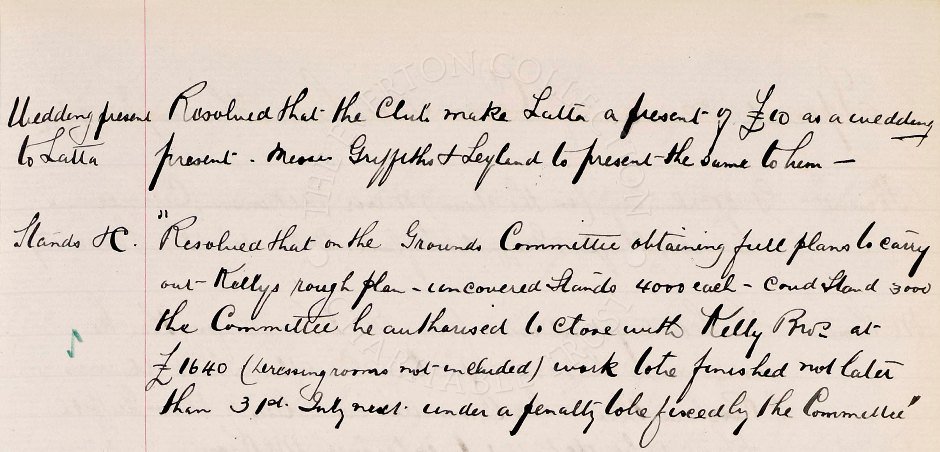 Wedding present
to Latta
Resolved that the Club make Latta a present of £10 as a wedding
present. Messrs Griffiths & Leyland to present the same to him —
Stands &c.
"Resolved that on the Grounds Committee obtaining full plans to carry
out Kellys rough plan - uncovered Stands 4000 each - covd Stand 3000
the Committee be authorised to close with Kelly Bros at
£1640 (dressing rooms not included) work to be finished not later
than 31st July next under a penalty to be fixed by the Committee"